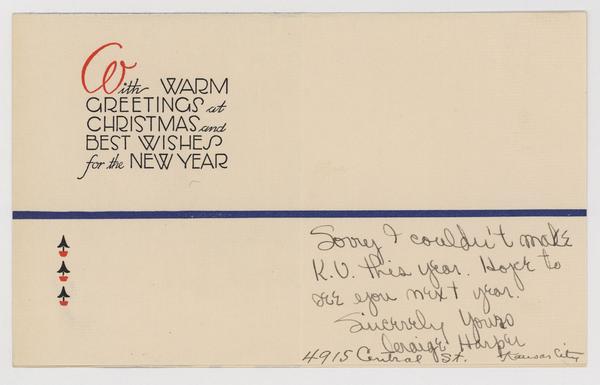 With WARM
GREETINGS at
CHRISTMAS and
BEST WISHES
for the NEW YEAR
Sorry I couldn't make
K.U. this year. Hope to
see you next year.
Sincerely Yours
Harper
4915 Central St. Kansas City